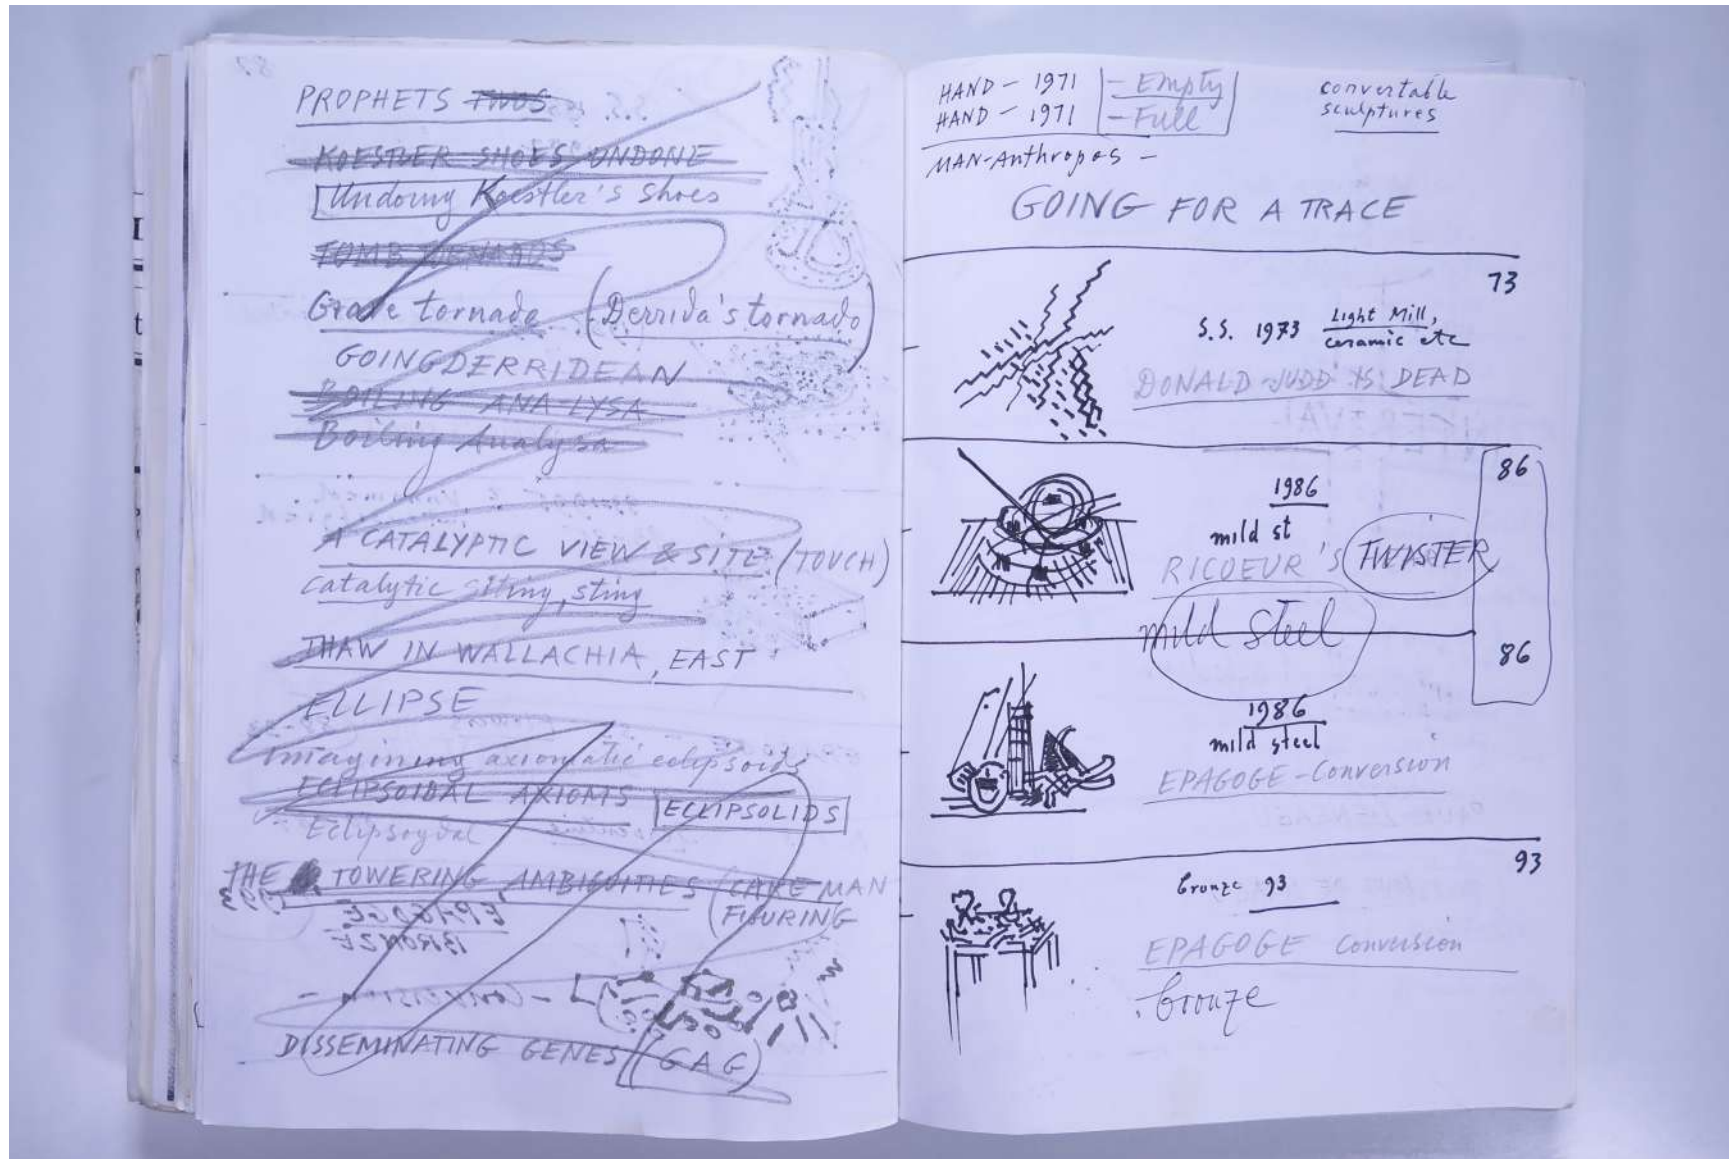 PROPHETS TWOS
KOESTLER SHOES UNDONE
Undoing Koestler's Shoes
TOMB TORNADOS
Grave tornado (Derrida's tornado)
GOING DERRIDEAN
BOILING ANA-LYSA
Boiling Analysa
A CATALYPTIC VIEW & SITE (TOUCH)
Catalytic siting, sting
THAW IN WALLACHIA, EAST
ELLIPSE
Imagining axiomatic eclipsoids
ECLIPSOIDAL AXIOMS ECLIPSOLIDS
Eclipsoydal
THE TOWERING AMBIGUITIES (CAVE MAN
FIGURING
DISSEMINATING GENES (GAG)
HAND - 1971 - Empty
HAND - 1971 - Full
convertable
sculptures
MAN-Anthropos -
GOING FOR A TRACE
73
S.S. 1973 Light Mill,
ceramic etc
DONALD JUDD IS DEAD
86
1986
mild st
RICOEUR'S TWISTER
mild steel
86
1986
mild steel
EPAGOGE-Conversion
93
bronze 93
EPAGOGE Conversion
bronze